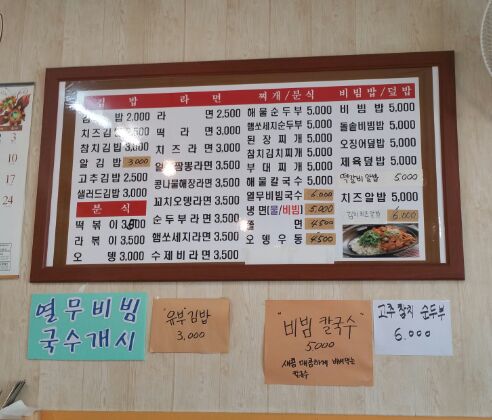 김 밥
김 밥 2,000
치즈김밥 2,500
참치김밥 3,000
알 김밥 3,000
고추김밥 3,000
샐러드김밥 3,000
분 식
떡 볶 이
라 볶 이 3,500
오 뎅 3,000
라 면
라 면 2,500
떡 라 면 3,000
치 즈 라 면 3,000
짬뽕라면 3,500
콩나물해장라면 3,500
꼬치오뎅라면 3,500
순두부라면 3,500
햄쏘세지라면 3,500
수제비라면 3,500
찌개/분식
해물순두부 5,000
햄쏘세지순두부 5,000
된 장 찌 개 5,000
참치김치찌개 5,000
부 대 찌 개 5,000
해물칼국수 5,000
열무비빔국수 6,000
냉면(물/비빔) 5,000
쫄 면 4,500
오 뎅 우 동 4,500
비빔밥/덮밥
비 빔 밥 5,000
돌솥비빔밥 5,000
오징어덮밥 5,000
제육덮밥 5,000
떡갈비알밥 5,000
치즈알밥 5,000
김치치즈알밥 6,000
3
10
17
24
열무비빔
국수개시
"유부"김밥
3,000
"비빔 칼국수"
5000
새콤 매콤하게 비벼먹는
칼국수
고추참치 순두부
6.000